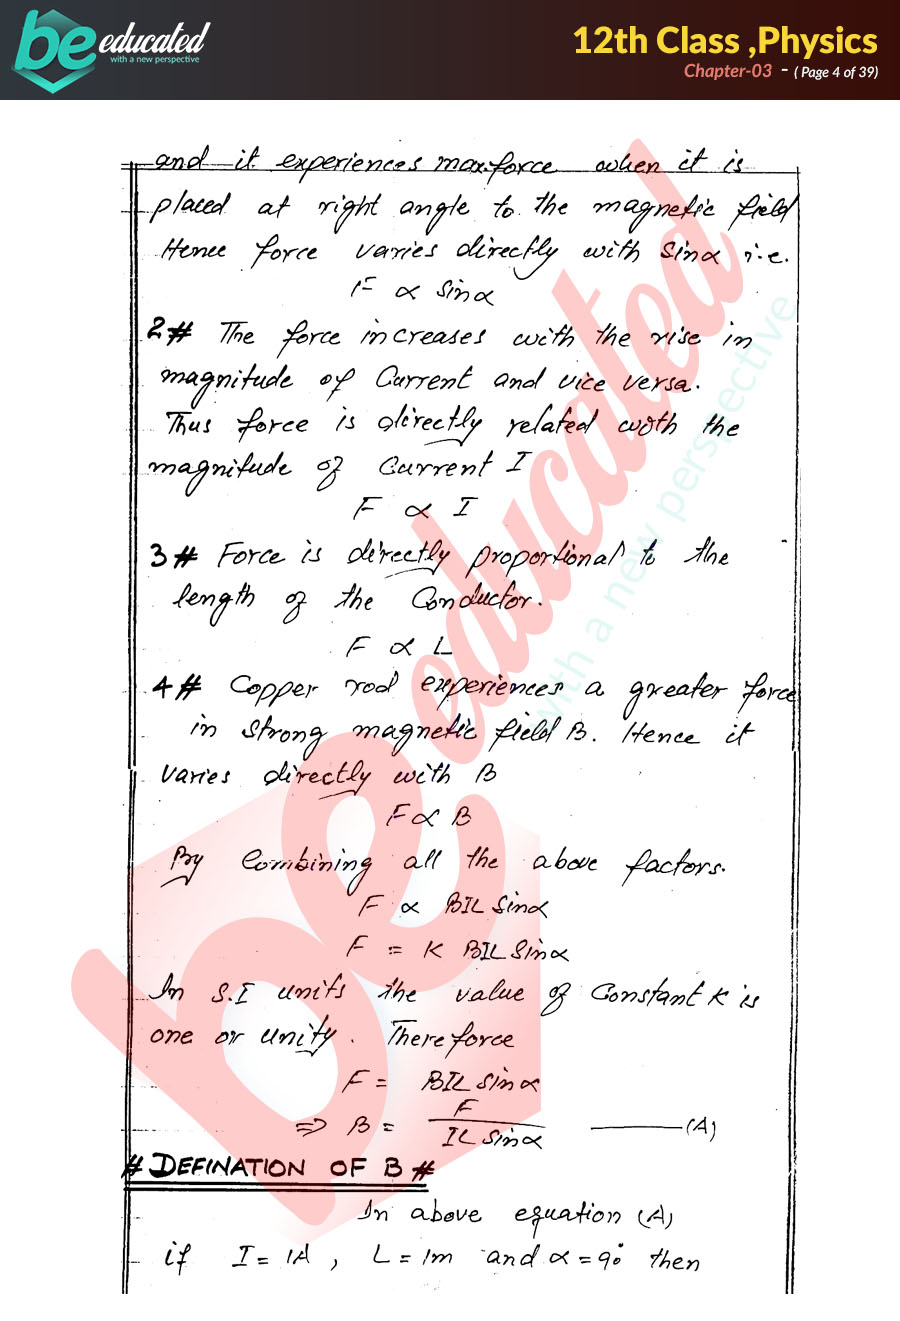 be educated
with a new perspective
12th Class ,Physics
Chapter-03 - ( Page 4 of 39)
and it experiences max.force when it is
placed at right angle to the magnetic field
Hence force varies directly with Sinα i.e.
F ∝ Sinα
2# The force increases with the rise in
magnitude of Current and vice versa.
Thus force is directly related with the
magnitude of Current I
F ∝ I
3# Force is directly proportional to the
length of the Conductor.
F ∝ L
4# Copper rod experiences a greater force
in strong magnetic field B. Hence it
varies directly with B
F ∝ B
By Combining all the above factors.
F ∝ BIL Sinα
F = K BIL Sinα
In S.I units the value of Constant K is
one or unity. Therefore
F = BIL Sinα
⇒ B = F / IL Sinα ——— (A)
# DEFINATION OF B #
In above equation (A)
if I = 1A , L = 1m and α = 90° then
be educated
with a new perspective